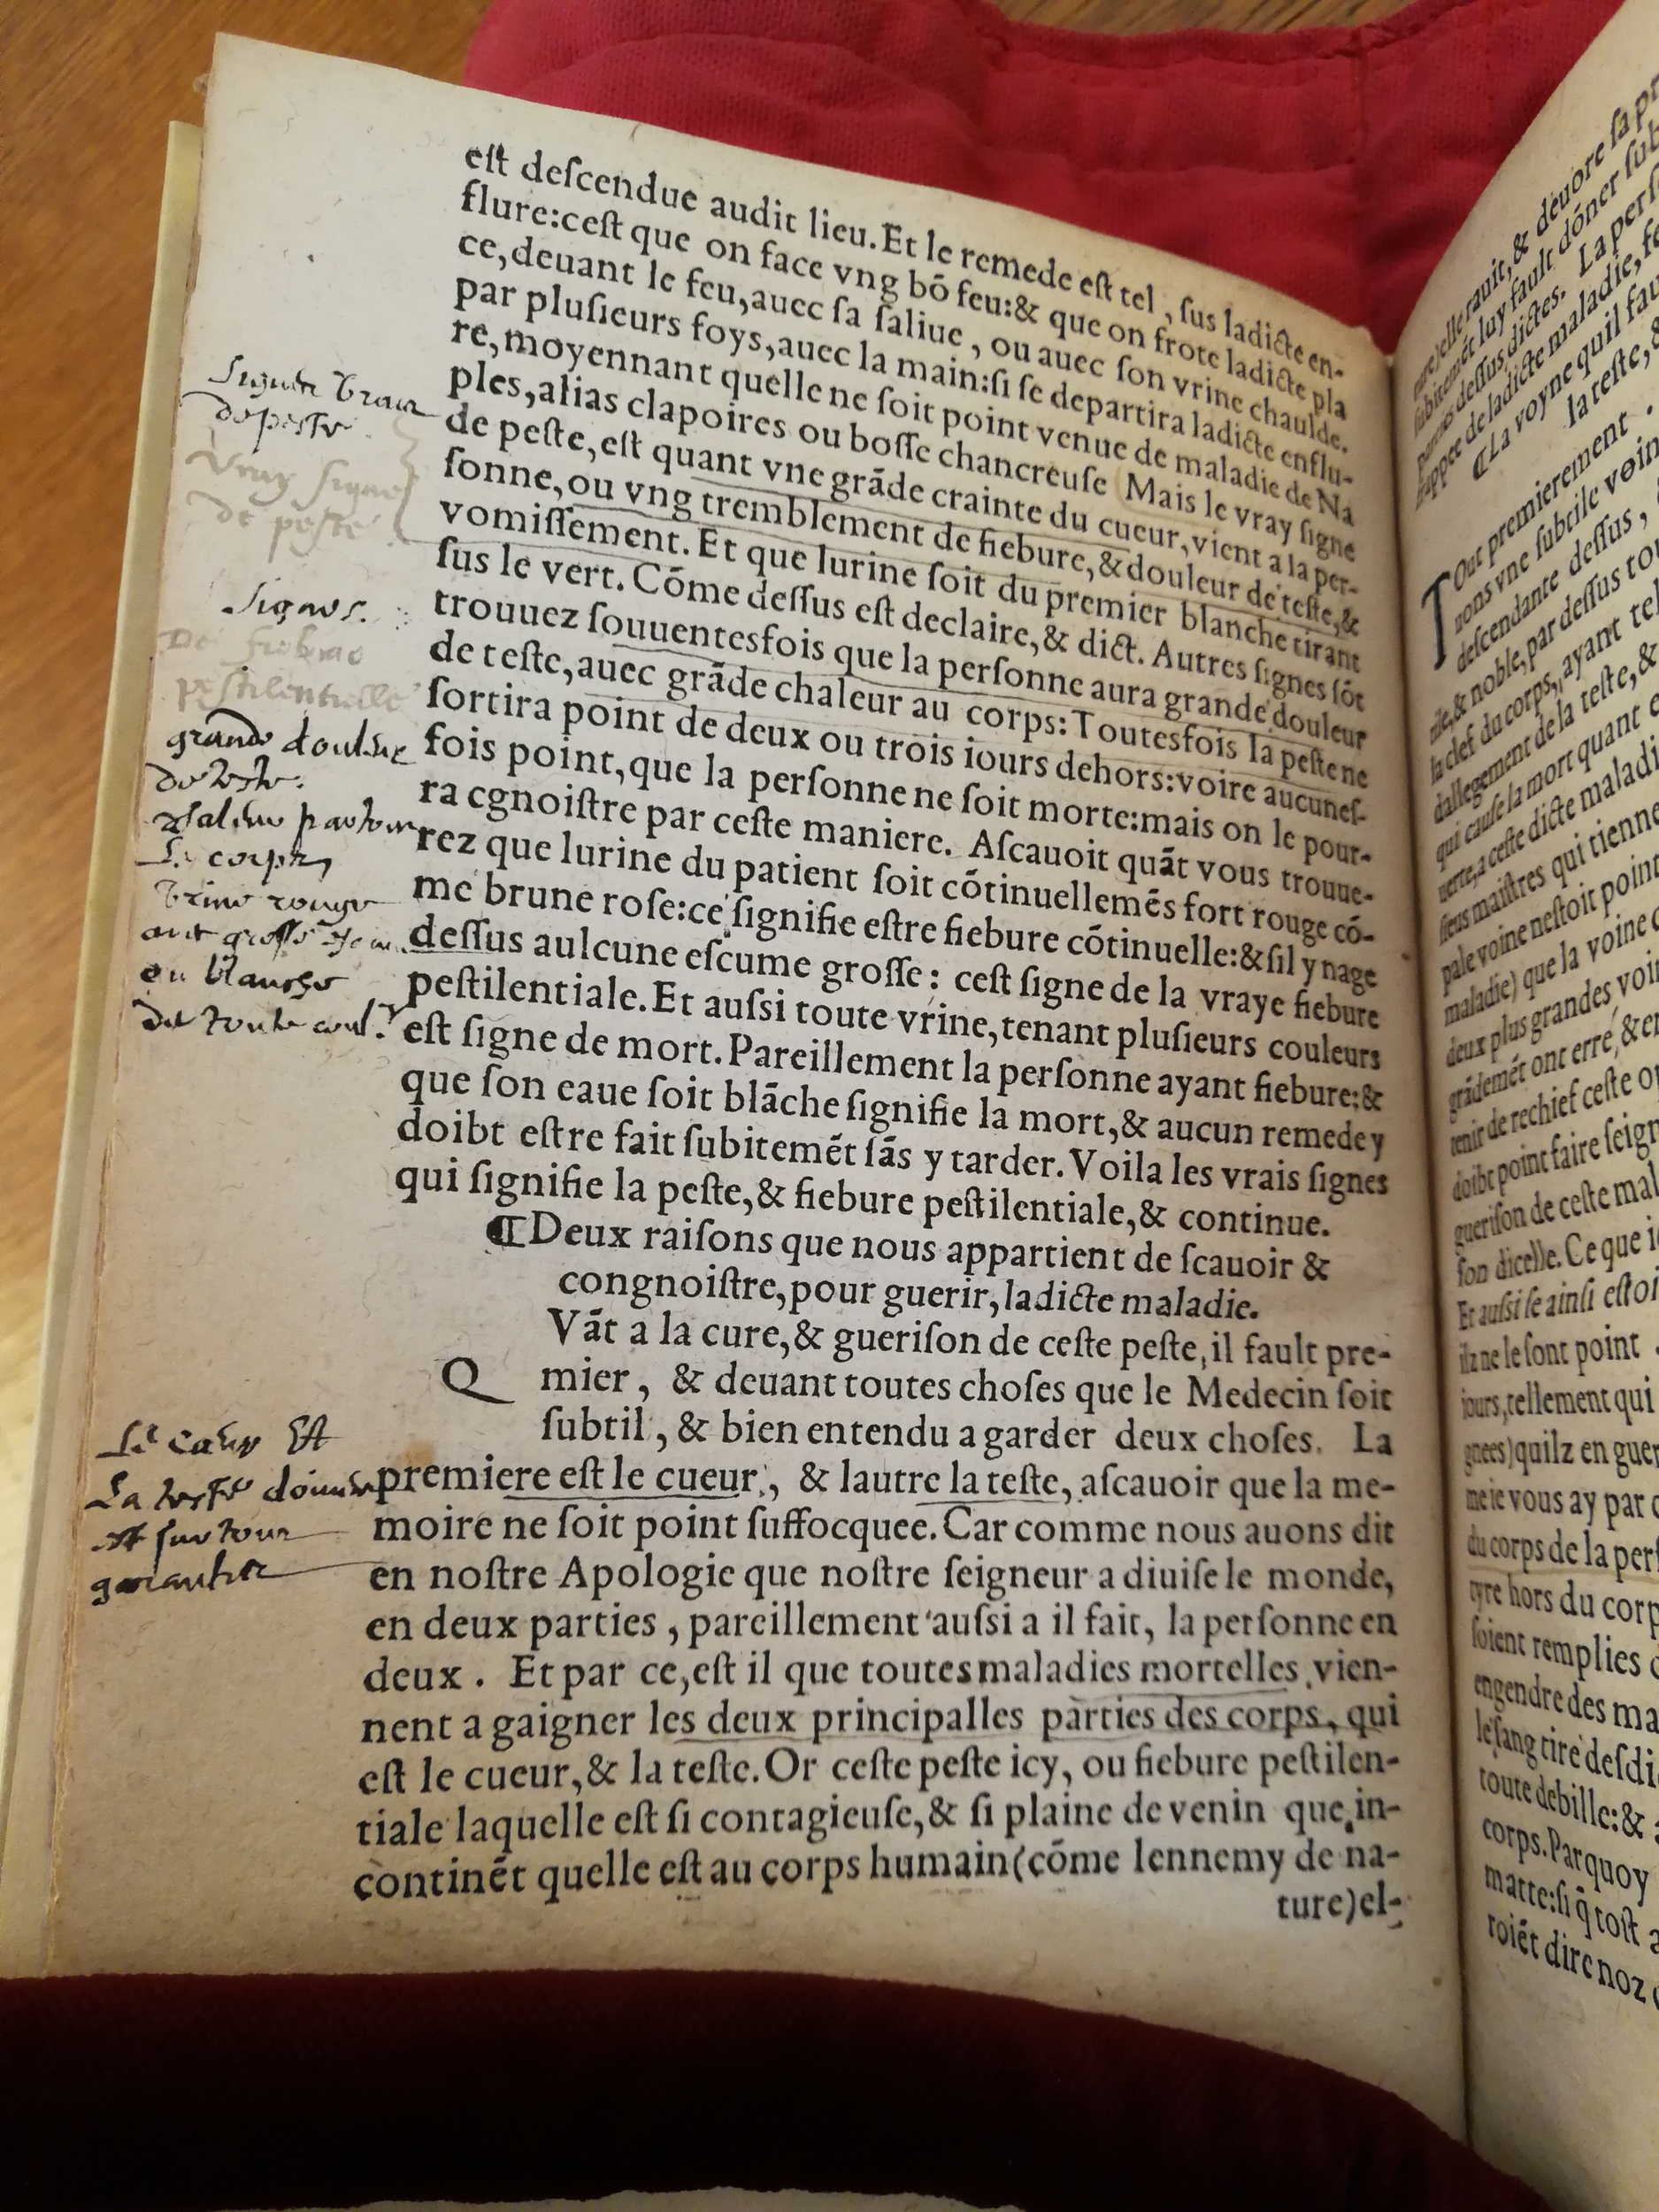 est descendue audit lieu. Et le remede est tel, sus ladicte en-
flure: cest que on face vng bõ feu: & que on frote ladicte pla
ce, deuant le feu, auec sa saliue, ou auec son vrine chaulde.
par plusieurs foys, auec la main: si se departira ladicte enflu-
re, moyennant quelle ne soit point venue de maladie de Na
ples, alias clapoires ou bosse chancreuse Mais le vray signe
de peste, est quant vne grãde crainte du cueur, vient a la per-
sonne, ou vng tremblement de fiebure, & douleur de teste, &
vomissement. Et que lurine soit du premier blanche tirant
sus le vert. Cõme dessus est declaire, & dict. Autres signes sõt
trouuez souuentesfois que la personne aura grande douleur
de teste, auec grãde chaleur au corps: Toutesfois la peste ne
sortira point de deux ou trois iours dehors: voire aucunes-
fois point, que la personne ne soit morte: mais on le pour-
ra cgnoistre par ceste maniere. Ascauoit quãt vous trouue-
rez que lurine du patient soit cõtinuellemẽs fort rouge cõ-
me brune rose: ce signifie estre fiebure cõtinuelle: & sil y nage
dessus aulcune escume grosse: cest signe de la vraye fiebure
pestilentiale. Et aussi toute vrine, tenant plusieurs couleurs
est signe de mort. Pareillement la personne ayant fiebure: &
que son eaue soit blãche signifie la mort, & aucun remede y
doibt estre fait subitemẽt sãs y tarder. Voila les vrais signes
qui signifie la peste, & fiebure pestilentiale, & continue.
¶ Deux raisons que nous appartient de scauoir &
congnoistre, pour guerir, ladicte maladie.
QVãt a la cure, & guerison de ceste peste, il fault pre-
mier, & deuant toutes choses que le Medecin soit
subtil, & bien entendu a garder deux choses. La
premiere est le cueur, & lautre la teste, ascauoir que la me-
moire ne soit point suffocquee. Car comme nous auons dit
en nostre Apologie que nostre seigneur a diuise le monde,
en deux parties, pareillement aussi a il fait, la personne en
deux. Et par ce, est il que toutes maladies mortelles vien-
nent a gaigner les deux principalles parties des corps, qui
est le cueur, & la teste. Or ceste peste icy, ou fiebure pestilen-
tiale laquelle est si contagieuse, & si plaine de venin que in-
continẽt quelle est au corps humain (cõme lennemy de na-
ture) el-
de peste
Vray signe
de peste
Signes.
De fiebure
pestilentielle
grande douleur
de teste.
le corps
vrine rouge
ou blanche
de toute coul.r
Le cœur Et
La teste
garantir
ture) elle rauit, & deuore sa
subitemẽt luy fault dõner
dessus dictes. La
frappee de ladicte maladie,
¶ La voyne quil
la teste, &
TOut premierement
nons vne subtile
descendante dessus,
& noble, par dessus
la clef du corps, ayant
dallegement de la teste, &
qui cause la mort quant
a ceste dicte
maistres qui
pale voine nestoit point
maladie) que la voine
deux plus grandes
grãdemẽt ont erre, &
tenir de rechief ceste
doibt point faire
guerison de ceste
son dicelle. Ce que
Et aussi se ainsi
ilz ne le sont point
iours, tellement qui
gnees) quilz en
me ie vous ay par
du corps de la
tyre hors du
soient remplies
engendre des
le sang tire
toute debille: &
corps. Parquoy
matte: si q̃ tost
roiẽt dire noz